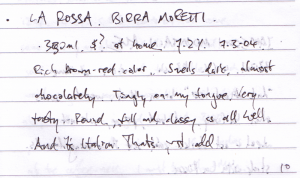 · LA ROSSA, BIRRA MORETTI.
· 330ml, $? at home 7.2% 7.3-04
Rich brown-red color. Smells dark, almost
chocolately. Tingly on my tongue, very
tasty. Round, full and classy as all hell.
And it's Italian. That's just odd.
10